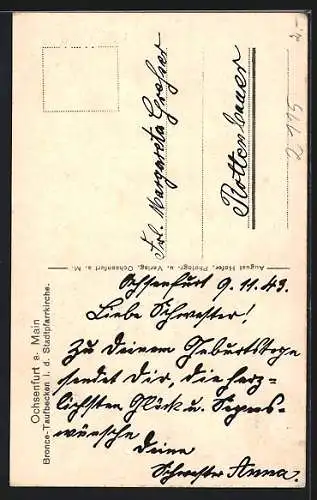 Ochsenfurt a. Main
Bronce-Taufbecken i. d. Stadtpfarrkirche.
August Hofer, Photogr. u. Verlag, Ochsenfurt a. M.
Ochsenfurt 9.11.43.
Liebe Schwester!
Zu Deinem Geburtstage
sendet Dir, die herz-
lichsten Glück u. Segens-
wünsche
Deine
Schwester Anna.
Frl. Margareta
Rottenbauer
2.-